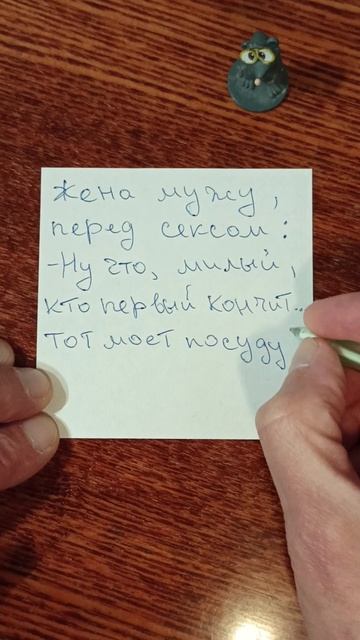 Жена мужу,
перед сексом:
-Ну что, милый,
кто первый кончит..
тот моет посуду